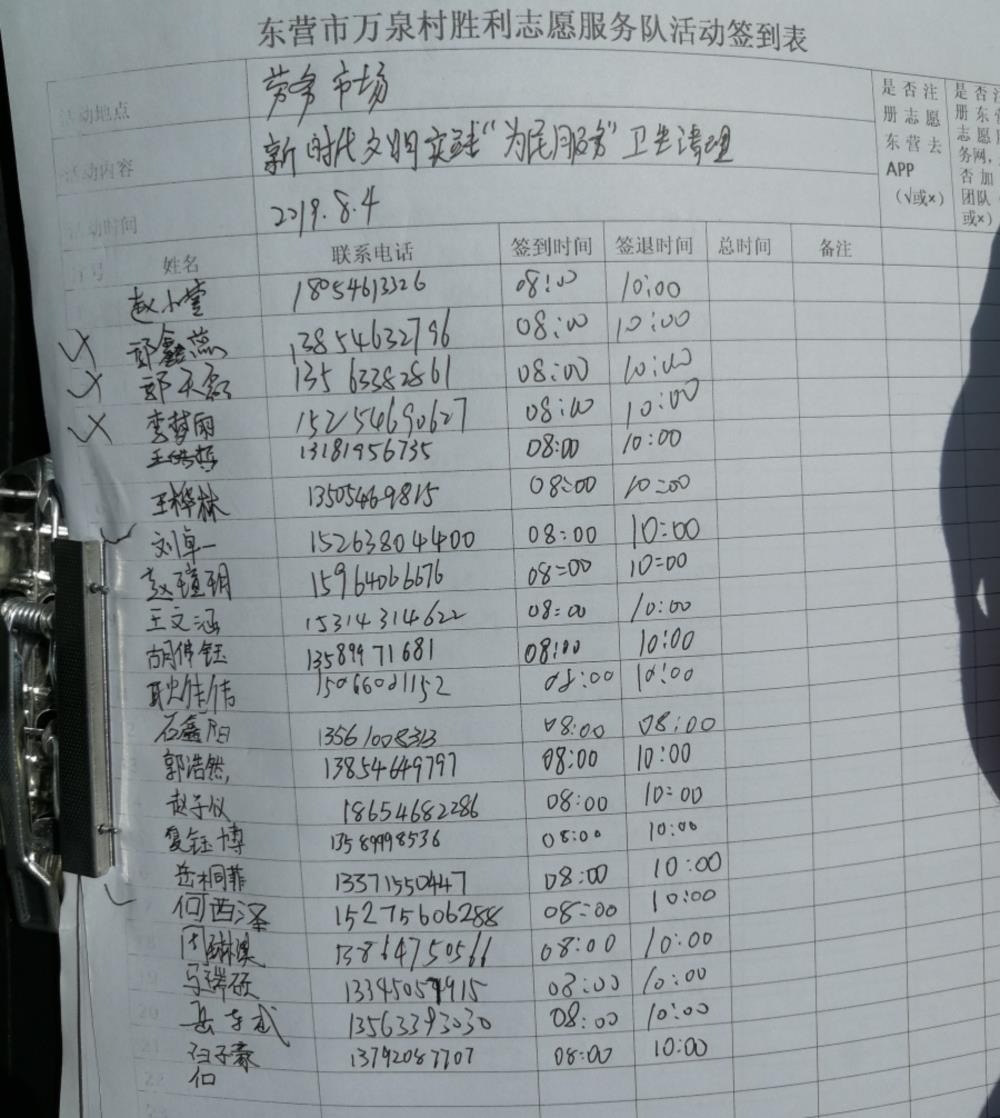 东营市万泉村胜利志愿服务队活动签到表
活动地点 劳务市场
活动内容 新时代文明实践“为民服务”卫生清理
活动时间 2019.8.4
是否注册志愿东营去APP(√或×)
序号 姓名 联系电话 签到时间 签退时间 总时间 备注
赵小萱 18054613326 08:00 10:00
郭鑫蕊 13854632796 08:00 10:00
郭天磊 13563382861 08:00 10:00
李梦雨 152154690627 08:00 10:00
13181956735 08:00 10:00
王梓林 13505469815 08:00 10:00
刘卓一 15263804400 08:00 10:00
赵瑄玥 15964066676 08:00 10:00
王文涵 15314314622 08:00 10:00
胡伟钰 13589971681 08:00 10:00
耿佳伟 15066001152 08:00 10:00
石鑫阳 13561008313 08:00 08:00
郭浩然 13854649797 08:00 10:00
赵子仪 18654682286 08:00 10:00
夏钰博 13589998536 08:00 10:00
岳桐菲 13371550447 08:00 10:00
何西泽 15275606288 08:00 10:00
18 13864750566 08:00 10:00
19 马瑞硕 13345057915 08:00 10:00
20 13563393030 08:00 10:00
21 13792087707 08:00 10:00
22
23